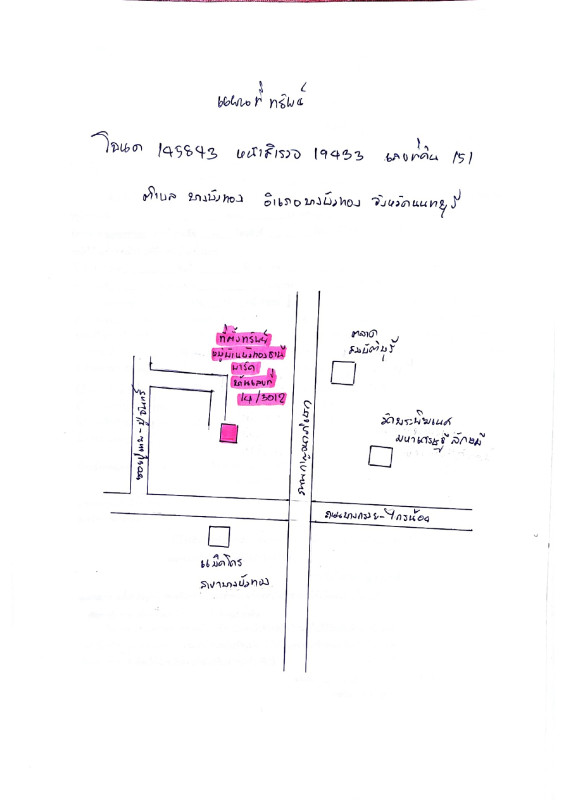 แผนที่ ทรัพย์
โฉนด 145843 หน้าสำรวจ 19433 เลขที่ดิน 151
ตำบล บางบัวทอง อำเภอบางบัวทอง จังหวัดนนทบุรี
ที่ตั้งทรัพย์
หมู่บ้านบัวทองธานี
พาร์ค
บ้านเลขที่
14/3012
ตลาด
สมบัติบุรี
วัดพระพิฆเนศ
มหาเศรษฐี ลักษมี
ถนนกาญจนาภิเษก
ถนนบางกรวย-ไทรน้อย
แม็คโคร
สาขาบางบัวทอง